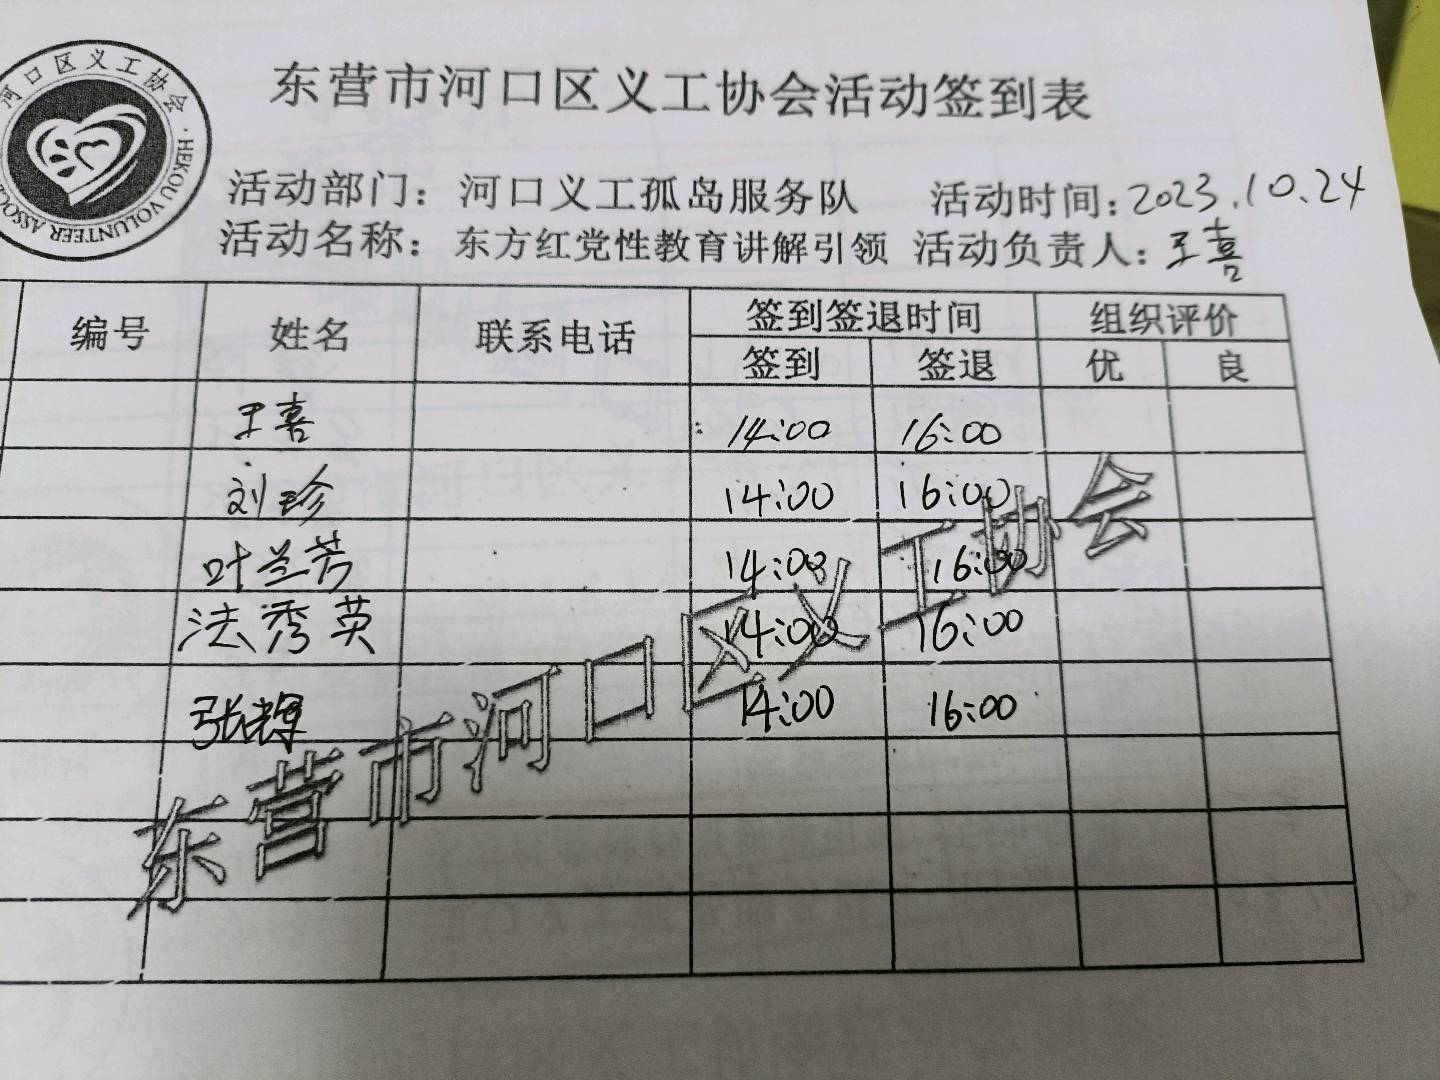 河口区义工协会·HEKOU VOLUNTEER ASSOC
东营市河口区义工协会活动签到表
活动部门：河口义工孤岛服务队 活动时间：2023.10.24
活动名称：东方红党性教育讲解引领 活动负责人：王喜
编号 姓名 联系电话 签到签退时间 组织评价
签到 签退 优 良
王喜 14:00 16:00
刘珍 14:00 16:00
叶兰芳 14:00 16:00
法秀英 14:00 16:00
张辉 14:00 16:00
东营市河口区义工协会